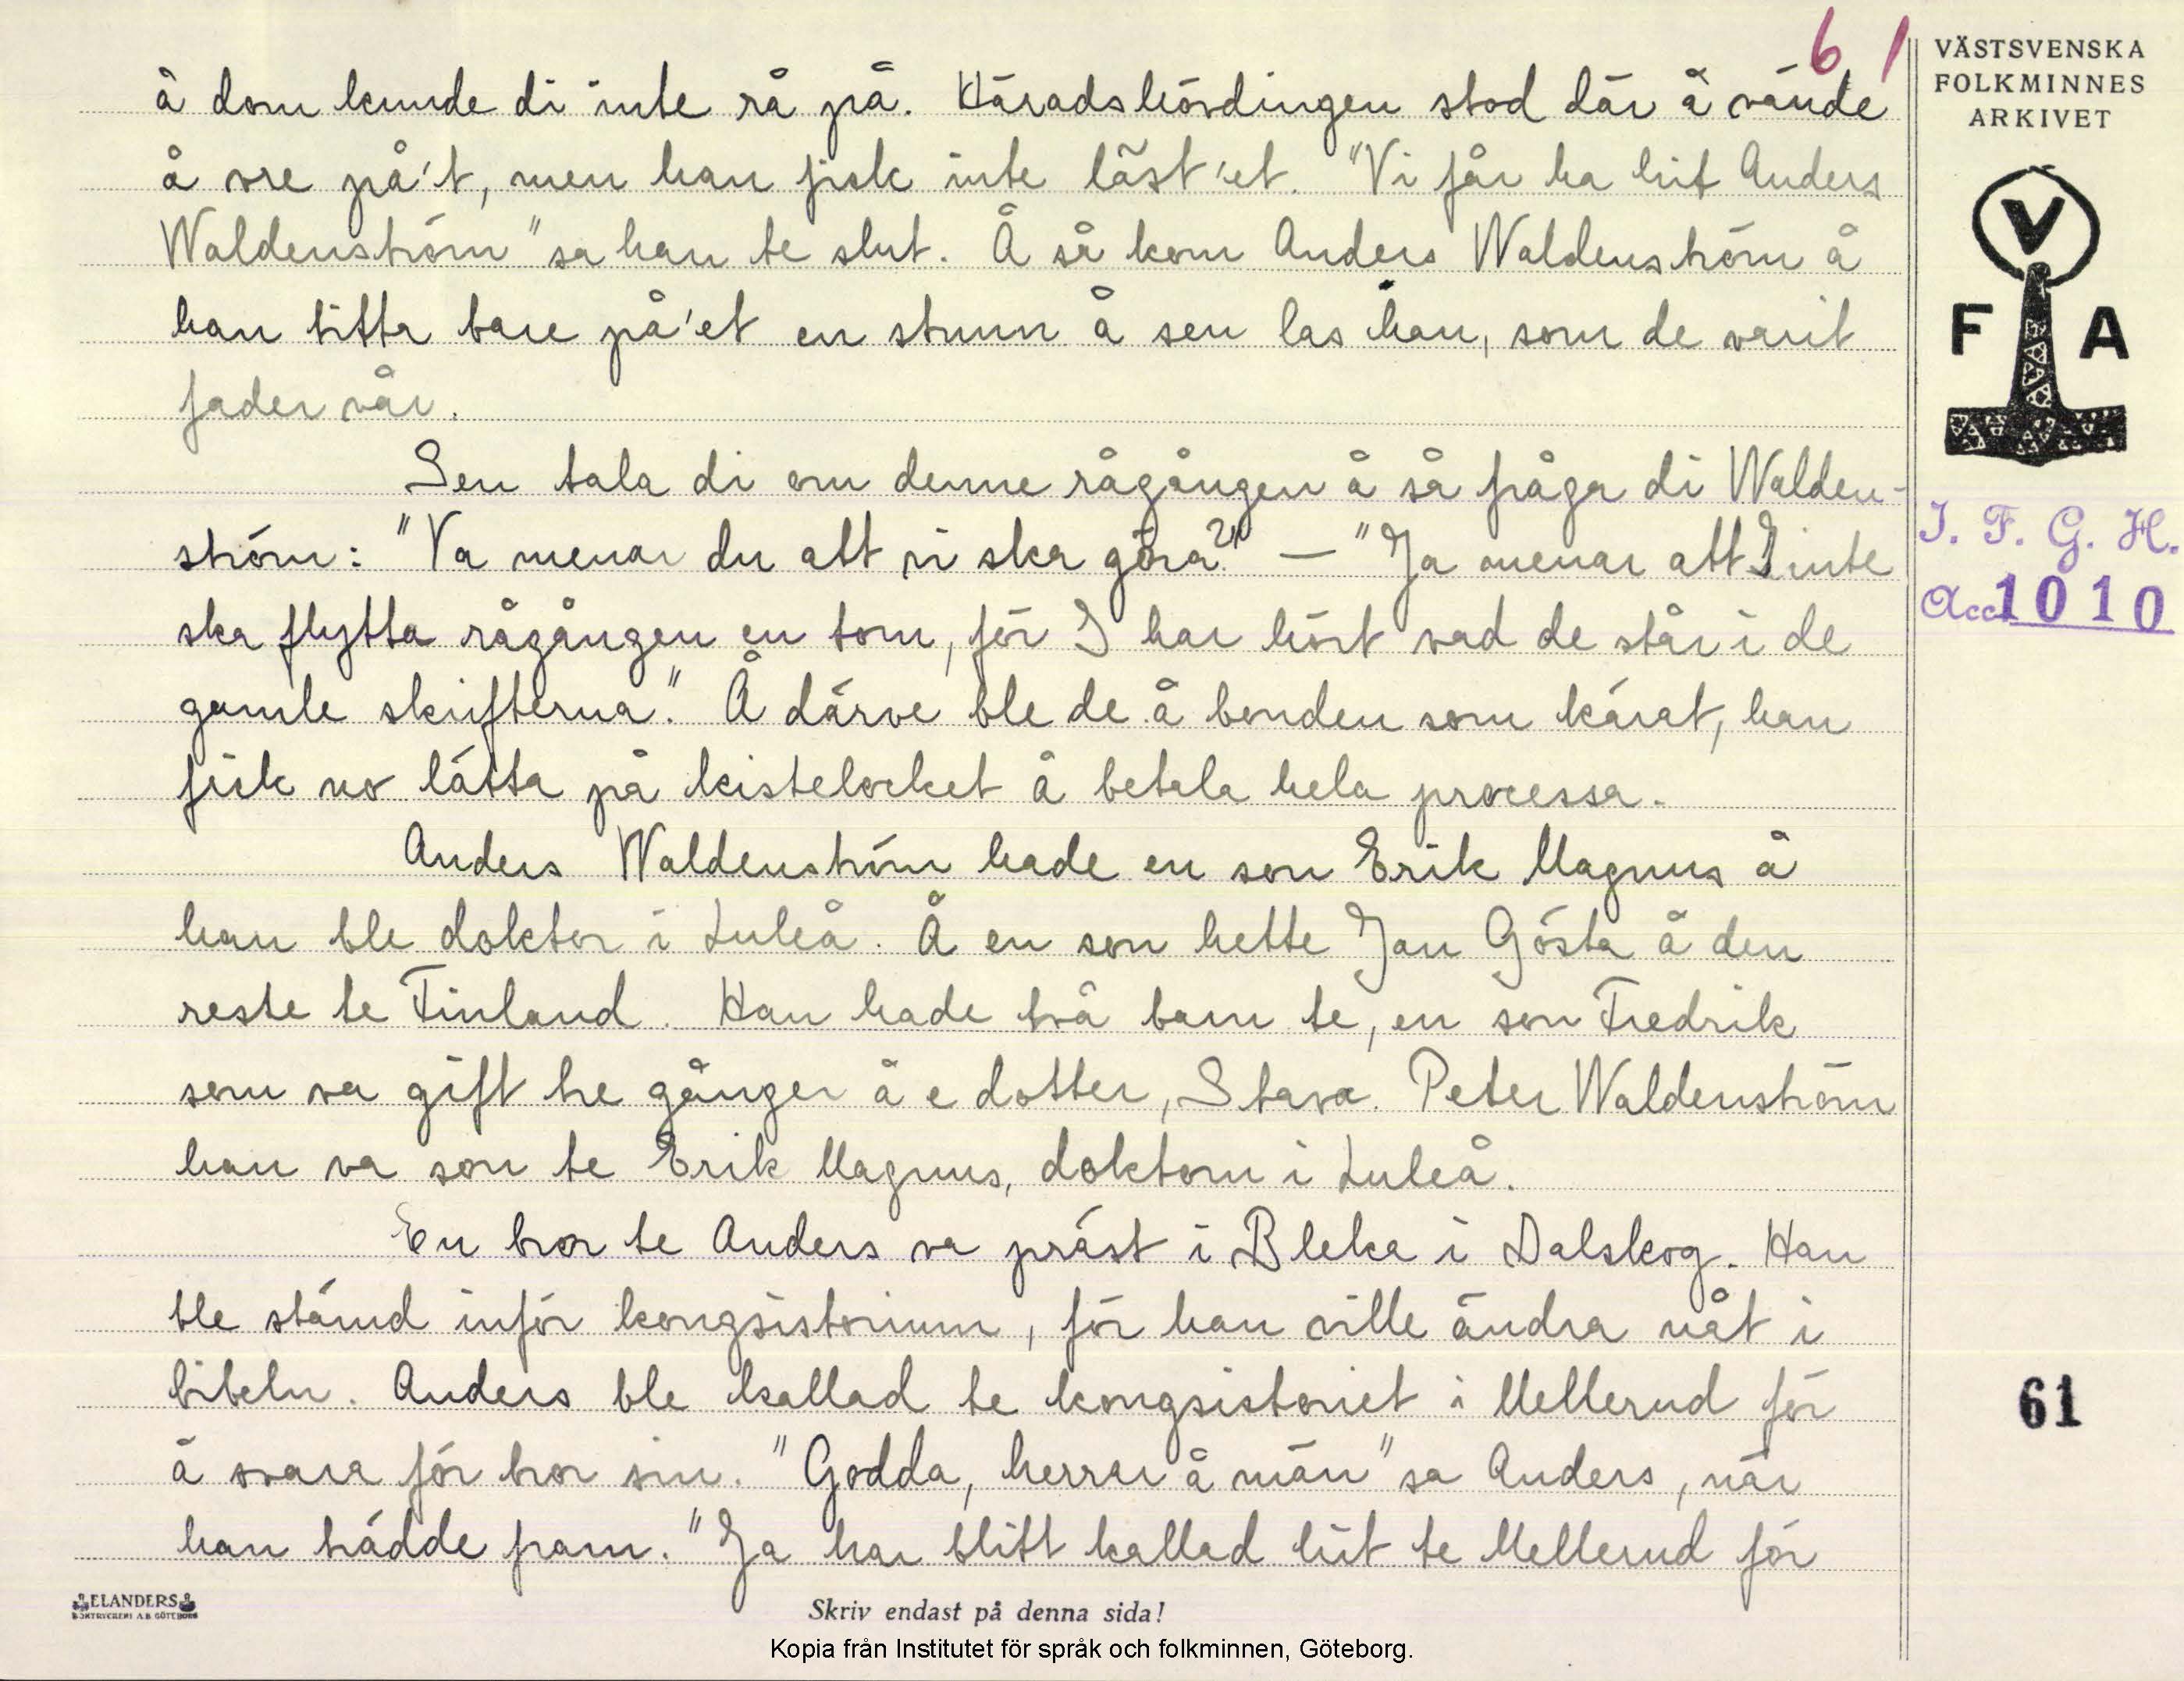 61
VÄSTSVENSKA
FOLKMINNES
ARKIVET
å dom kunde di inte rå på. Häradshövdingen stod där å vände
å vre på't, men han fick inte läst'et. "Vi får ha hit Anders
Waldenström" sa han te slut. Å så kom Anders Waldenström å
han titta bare på'et en stunn å sen las han, som de varit
fader vår.
Sen tala di om denne rågången å så fråga di Walden-
ström: "Va menar du att vi ska göra?" — "Ja menar att I inte
ska flytta rågången en tom, för I har hört vad de står i de
gamle skrifterna." Å därve ble de å bonden som kärat, han
fick no lätta på kistelocket å betala hela processa.
Anders Waldenström hade en son Erik Magnus å
han ble doktor i Luleå. Å en son hette Jan Gösta å den
reste te Finland. Han hade två barn te, en son Fredrik
som va gift tre gånger å e dotter, Stava. Peter Waldenström
han va son te Erik Magnus, doktorn i Luleå.
En bror te Anders va präst i Bleka i Dalskog. Han
ble stämd inför kongsistorium, för han ville ändra nåt i
bibeln. Anders ble kallad te kongsistoriet i Mellerud för
å svara för bror sin. "Godda, herrar å män" sa Anders, när
han trädde fram. "Ja har blitt kallad hit te Mellerud för
V
F A
I. F. G. H.
Acc. 1010
61
ELANDERS
BOKTRYCKERI A.B. GÖTEBORG
Skriv endast på denna sida!
Kopia från Institutet för språk och folkminnen, Göteborg.